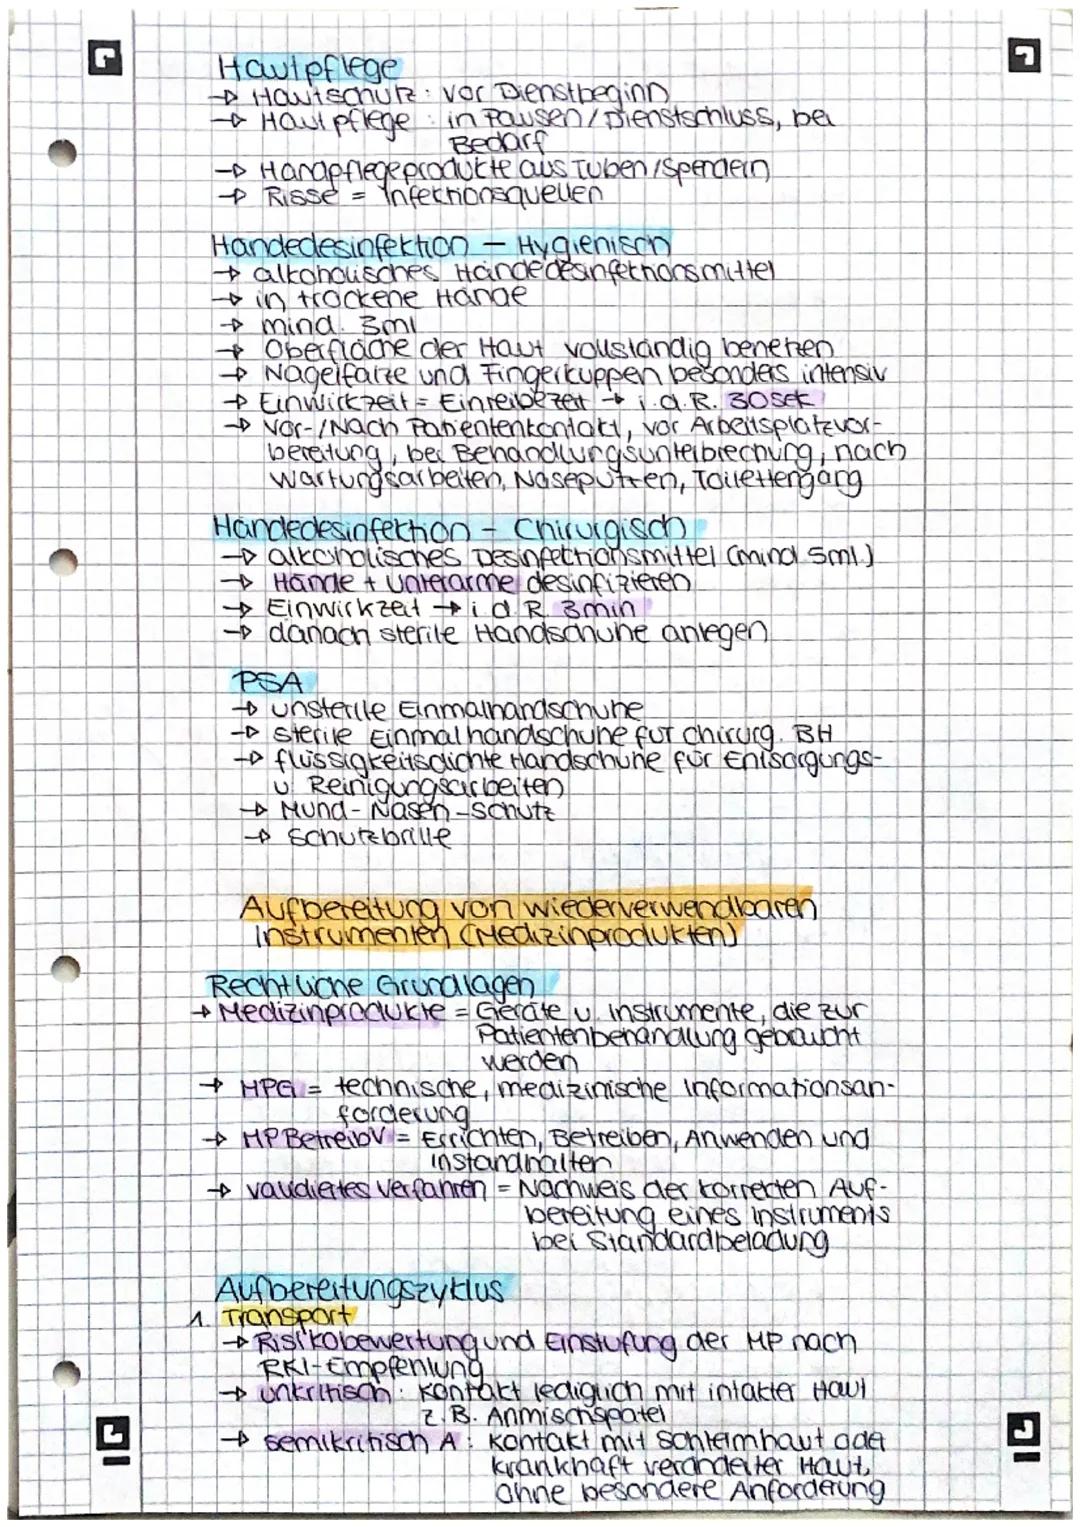 Hautpflege
→ Hautschutz: vor Dienstbeginn
→ Hautpflege: in Pausen/Dienstschluss, bei
Bedarf
→ Handpflegeprodukte aus Tuben/Spendern
→ Risse = Infektionsquellen
Händedesinfektion – Hygienisch
→ alkoholisches Händedesinfektionsmittel
→ in trockene Hände
→ mind. 3ml
→ Oberfläche der Haut vollständig benetzen
→ Nagelfalze und Fingerkuppen besonders intensiv
→ Einwirkzeit = Einreibezeit → i.d.R. 30sek
→ Vor-/Nach Patientenkontakt, vor Arbeitsplatzvor-
bereitung, bei Behandlungsunterbrechung, nach
Wartungsarbeiten, Naseputzen, Toilettengang
Händedesinfektion – Chirurgisch
→ alkoholisches Desinfektionsmittel (mind. 5ml.)
→ Hände + Unterarme desinfizieren
→ Einwirkzeit → i.d.R. 3min
→ danach sterile Handschuhe anlegen
PSA
→ unsterile Einmalhandschuhe
→ sterile Einmalhandschuhe für chirurg. BH
→ flüssigkeitsdichte Handschuhe für Entsorgungs-
u. Reinigungsarbeiten
→ Mund-Nasen-Schutz
→ Schutzbrille
Aufbereitung von wiederverwendbaren
Instrumenten (Medizinprodukten)
Rechtliche Grundlagen
→ Medizinprodukte = Geräte u. Instrumente, die zur
Patientenbehandlung gebraucht
werden
→ MPG = technische, medizinische Informationsan-
forderung
→ MPBetreibV = Errichten, Betreiben, Anwenden und
Instandhalten
→ validiertes Verfahren = Nachweis der korrekten Auf-
bereitung eines Instruments
bei Standardbeladung
Aufbereitungszyklus
1. Transport
→ Risikobewertung und Einstufung der MP nach
RKI-Empfehlung
→ unkritisch: Kontakt lediglich mit intakter Haut
z.B. Anmischspatel
→ semikritisch A: Kontakt mit Schleimhaut oder
krankhaft veränderter Haut,
ohne besondere Anforderung